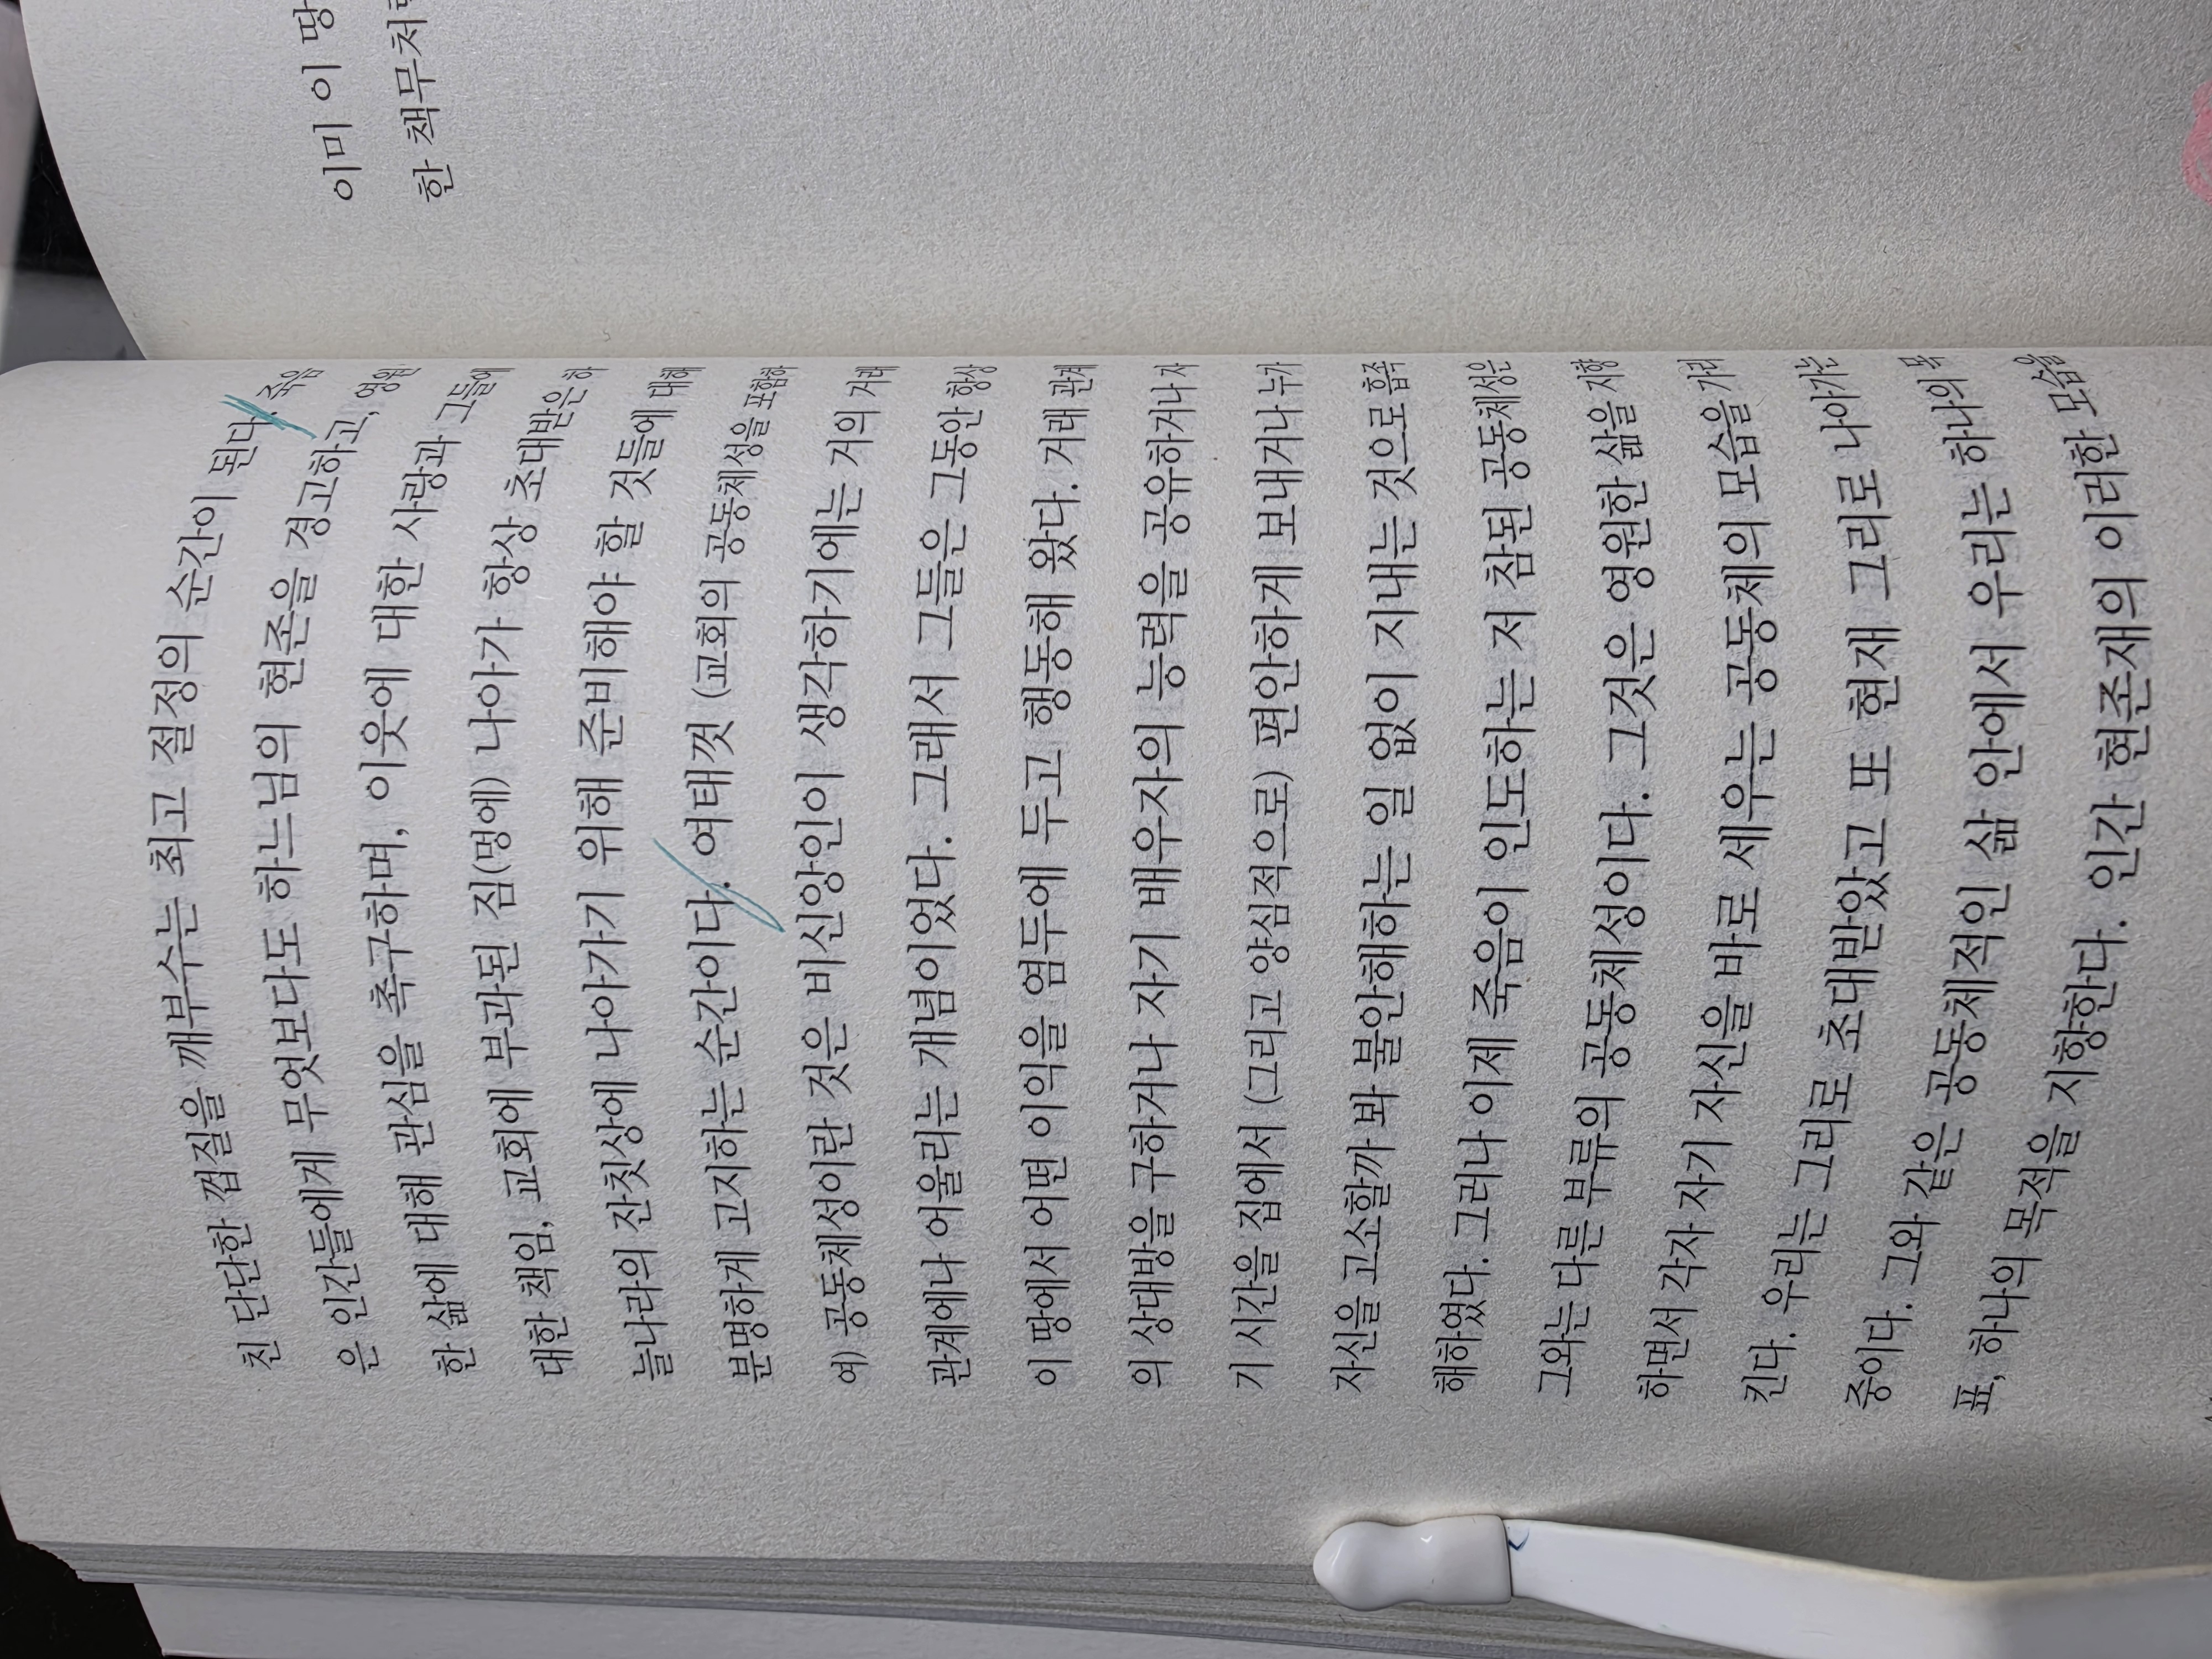 친 단단한 껍질을 깨부수는 최고 절정의 순간이 된다. 죽음
은 인간들에게 무엇보다도 하느님의 현존을 경고하고, 영원
한 삶에 대해 관심을 촉구하며, 이웃에 대한 사랑과 그들에
대한 책임, 교회에 부과된 짐(멍에) 나아가 항상 초대받은 하
늘나라의 잔칫상에 나아가기 위해 준비해야 할 것들에 대해
분명하게 고지하는 순간이다. 여태껏 (교회의 공동체성을 포함하
여) 공동체성이란 것은 비신앙인이 생각하기에는 거의 거래
관계에나 어울리는 개념이었다. 그래서 그들은 그동안 항상
이 땅에서 어떤 이익을 염두에 두고 행동해 왔다. 거래 관계
의 상대방을 구하거나 자기 배우자의 능력을 공유하거나 자
기 시간을 집에서 (그리고 양심적으로) 편안하게 보내거나 누가
자신을 고소할까 봐 불안해하는 일 없이 지내는 것으로 흡족
해하였다. 그러나 이제 죽음이 인도하는 저 참된 공동체성은
그와는 다른 부류의 공동체성이다. 그것은 영원한 삶을 지향
하면서 각자 자기 자신을 바로 세우는 공동체의 모습을 가리
킨다. 우리는 그리로 초대받았고 또 현재 그리로 나아가는
중이다. 그와 같은 공동체적인 삶 안에서 우리는 하나의 목
표, 하나의 목적을 지향한다. 인간 현존재의 이러한 모습을
이미 이 땅
한 책무처